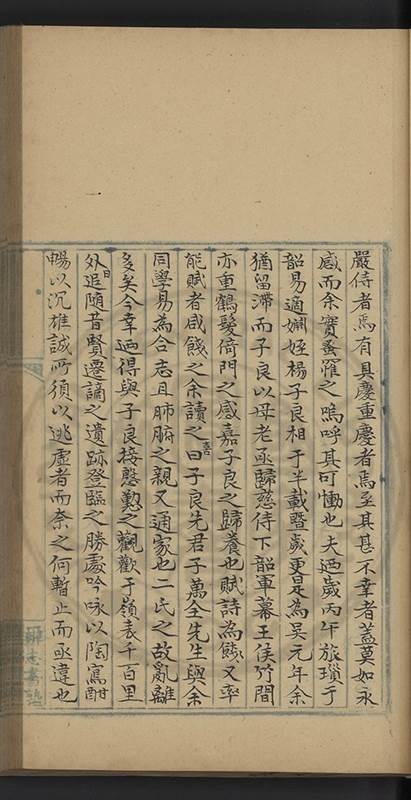 嚴侍者焉有具慶重慶者焉至其甚不幸者蓋莫如永
感而余實蚤罹之嗚呼其可慟也夫迺歲丙午旅瑣于
韶易適婣姪楊子良相于半載暨歲更是為吳元年余
猶留滯而子良以母老亟歸慈侍下韶軍幕王侯竹間
亦重鶴髮倚門之感嘉子良之歸養也賦詩為餞又率
能賦者咸餞之余讀之喜曰子良先君子萬全先生與余
同學易為合志且肺腑之親又通家也二氏之故亂離
多矣今幸迺得與子良接慇懃之觀歡于嶺表千百里
外日追隨昔賢遷謫之遺跡登臨之勝處吟咏以陶寫酣
暢以沉雄誠所須以逃虛者而奈之何暫止而亟違也